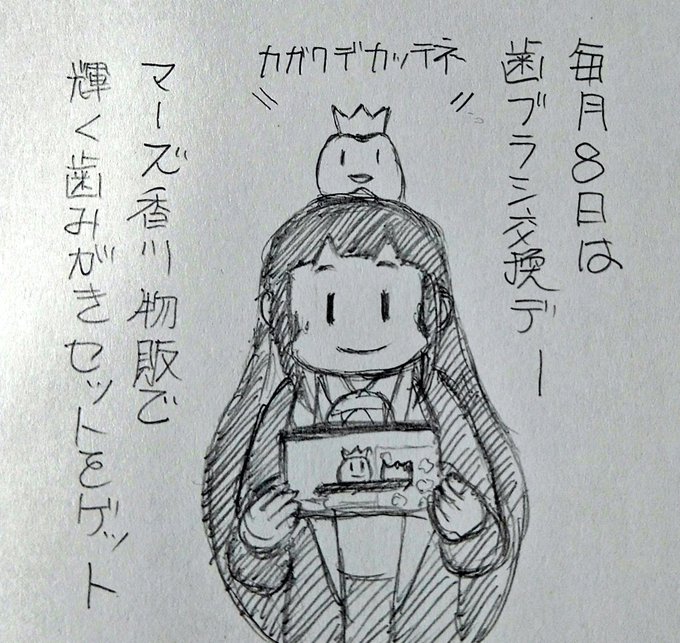 毎月8日は
歯ブラシ交換デー
カガワデカッテネ
マーズ香川物販で
輝く歯みがきセットをゲット